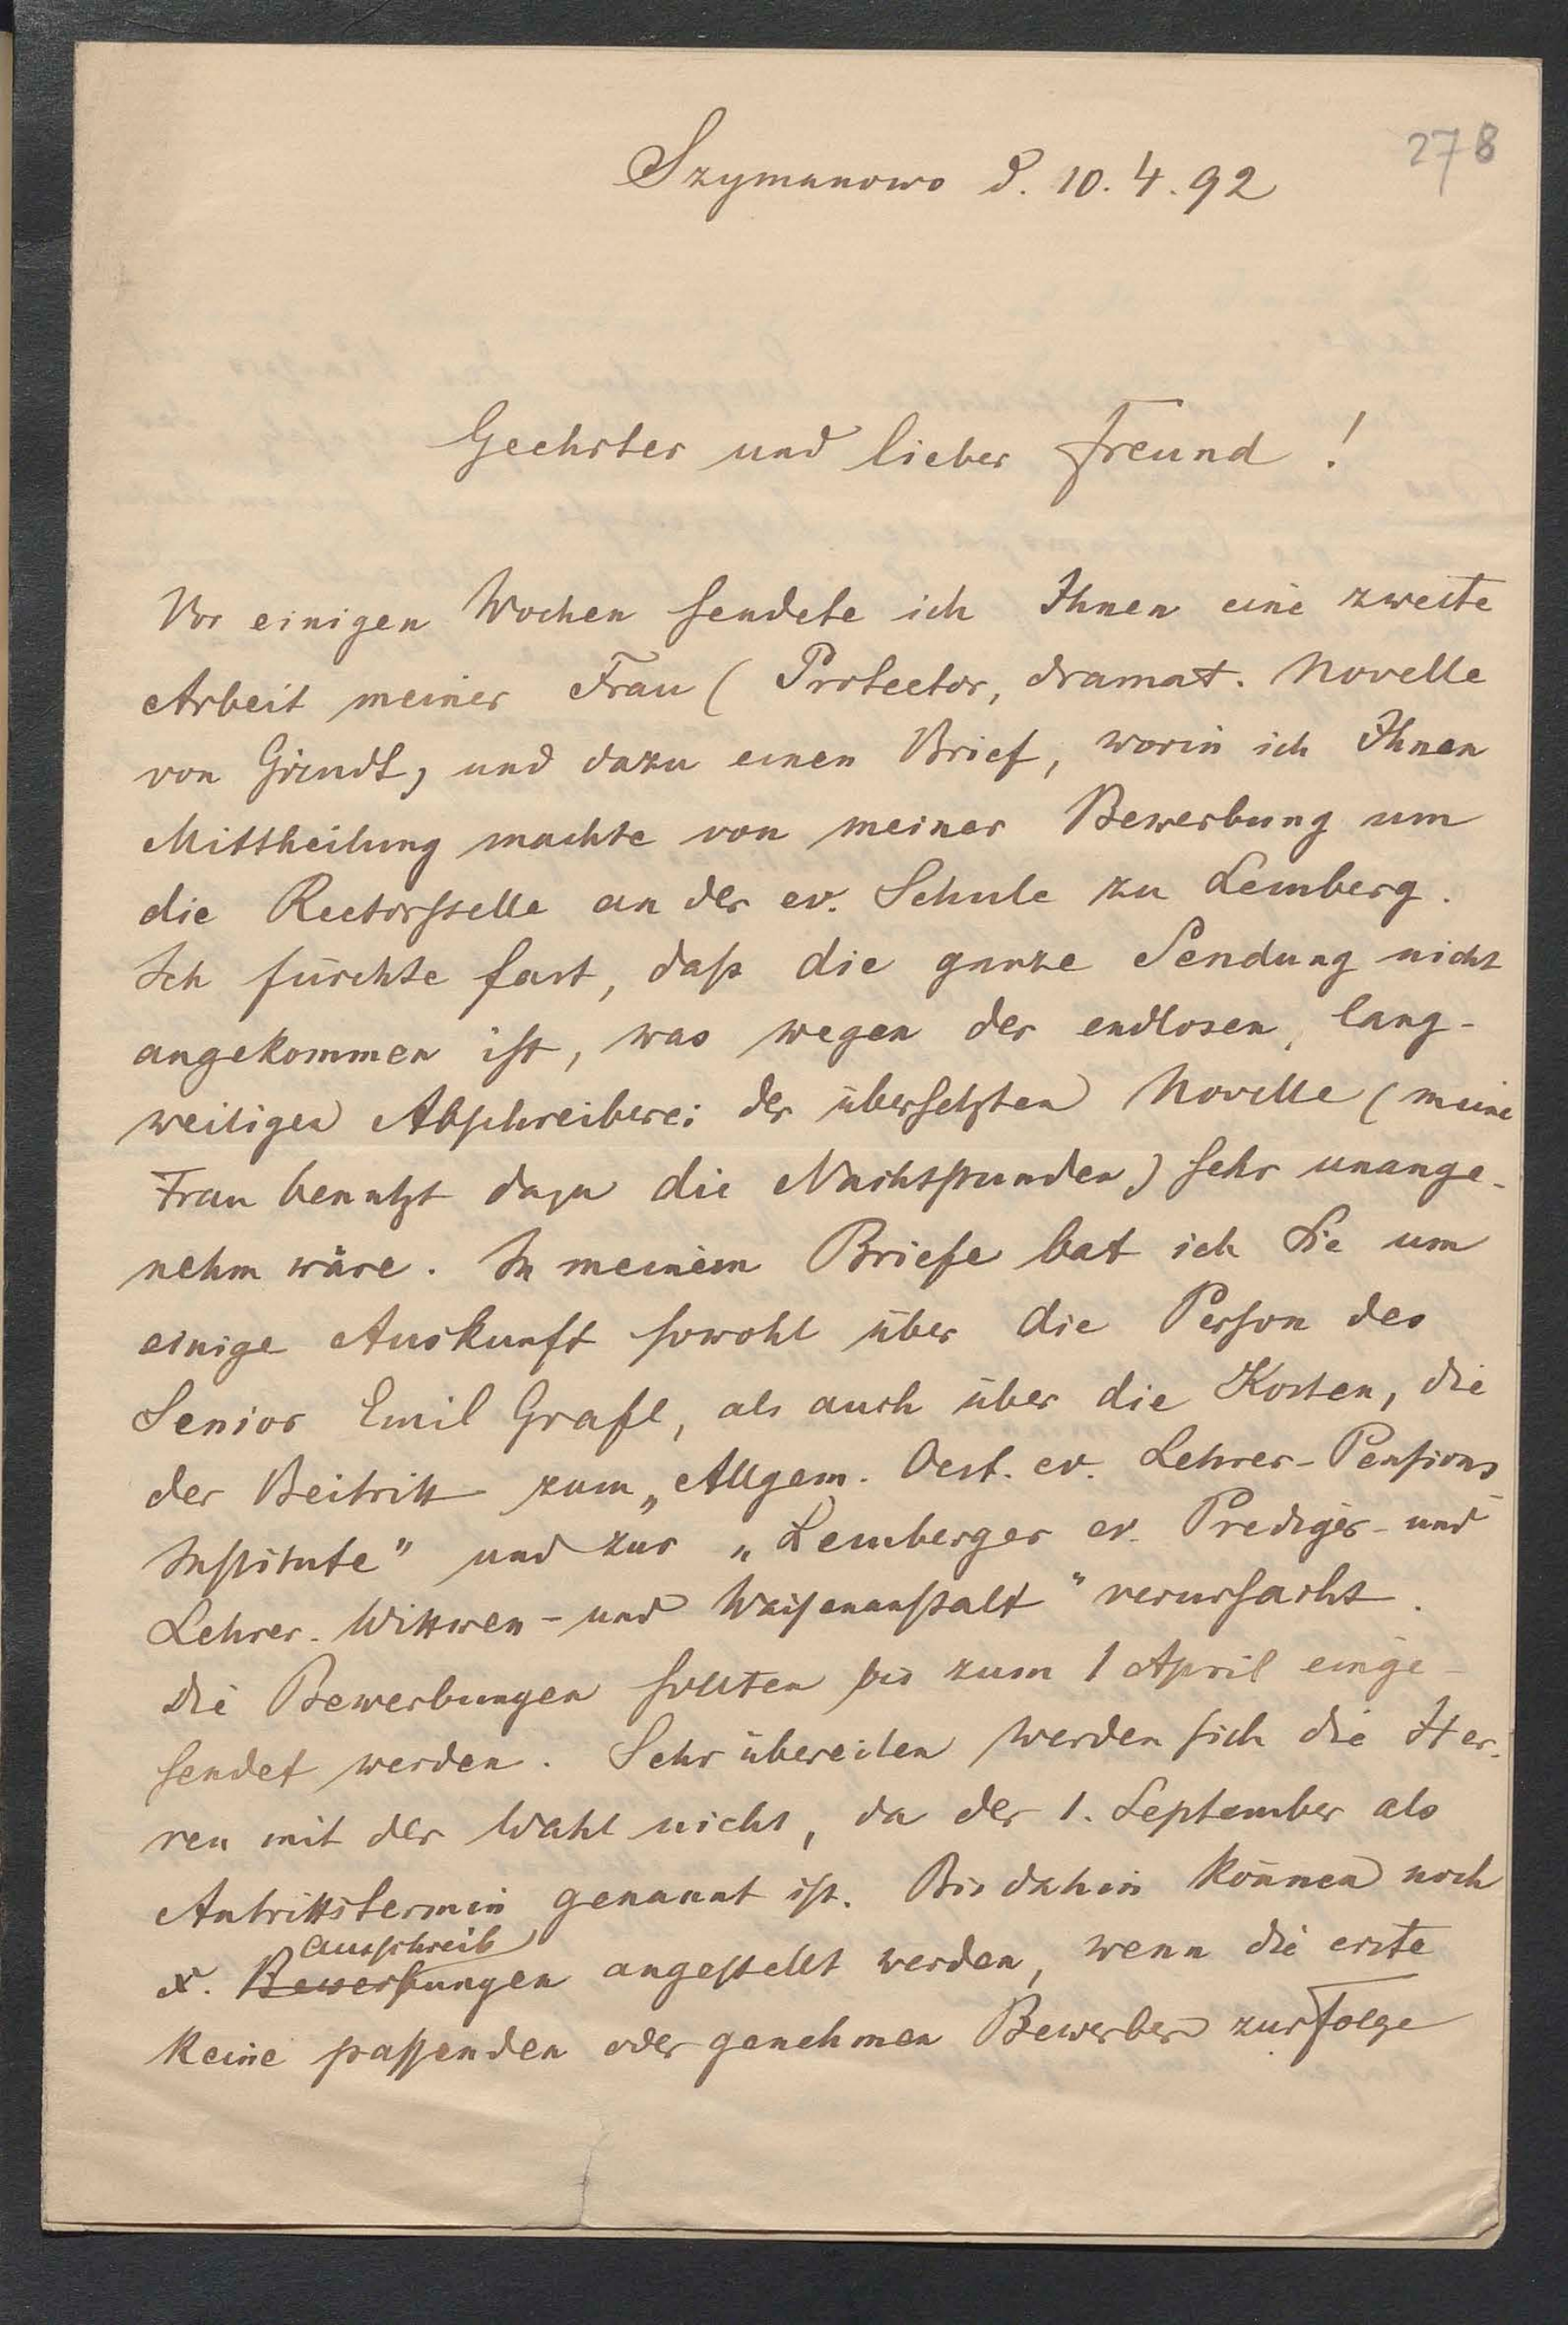 278
Szymanowo d. 10. 4. 92
Geehrter und lieber Freund!
Vor einigen Wochen sendete ich Ihnen eine zweite
Arbeit meiner Frau (Protector, dramat. Novelle
von Girndt) und dazu einen Brief, worin ich Ihnen
Mittheilung machte von meiner Bewerbung um
die Rectorstelle an der ev. Schule zu Lemberg.
Ich fürchte fast, daß die ganze Sendung nicht
angekommen ist, was wegen der endlosen, lang-
weiligen Abschreiberei der übersetzten Novelle (meine
Frau benutzt dazu die Nachtstunden) sehr unange-
nehm wäre. In meinem Briefe bat ich Sie um
einige Auskunft sowohl über die Person des
Senior Emil Grafl, als auch über die Kosten, die
der Beitritt zum „Allgem. Oest. ev. Lehrer-Pensions
Institute" und zur „Lemberger ev. Prediger- und
Lehrer-Wittwen- und Waisenanstalt" verursacht.
Die Bewerbungen sollten bis zum 1 April einge-
sendet werden. Sehr übereilen werden sich die Her-
ren mit der Wahl nicht, da der 1. September als
Antrittstermin genannt ist. Bis dahin können noch
ausschreib
x. Bewerbungen angestellt werden, wenn die erste
keine passenden oder genehmen Bewerber zur Folge